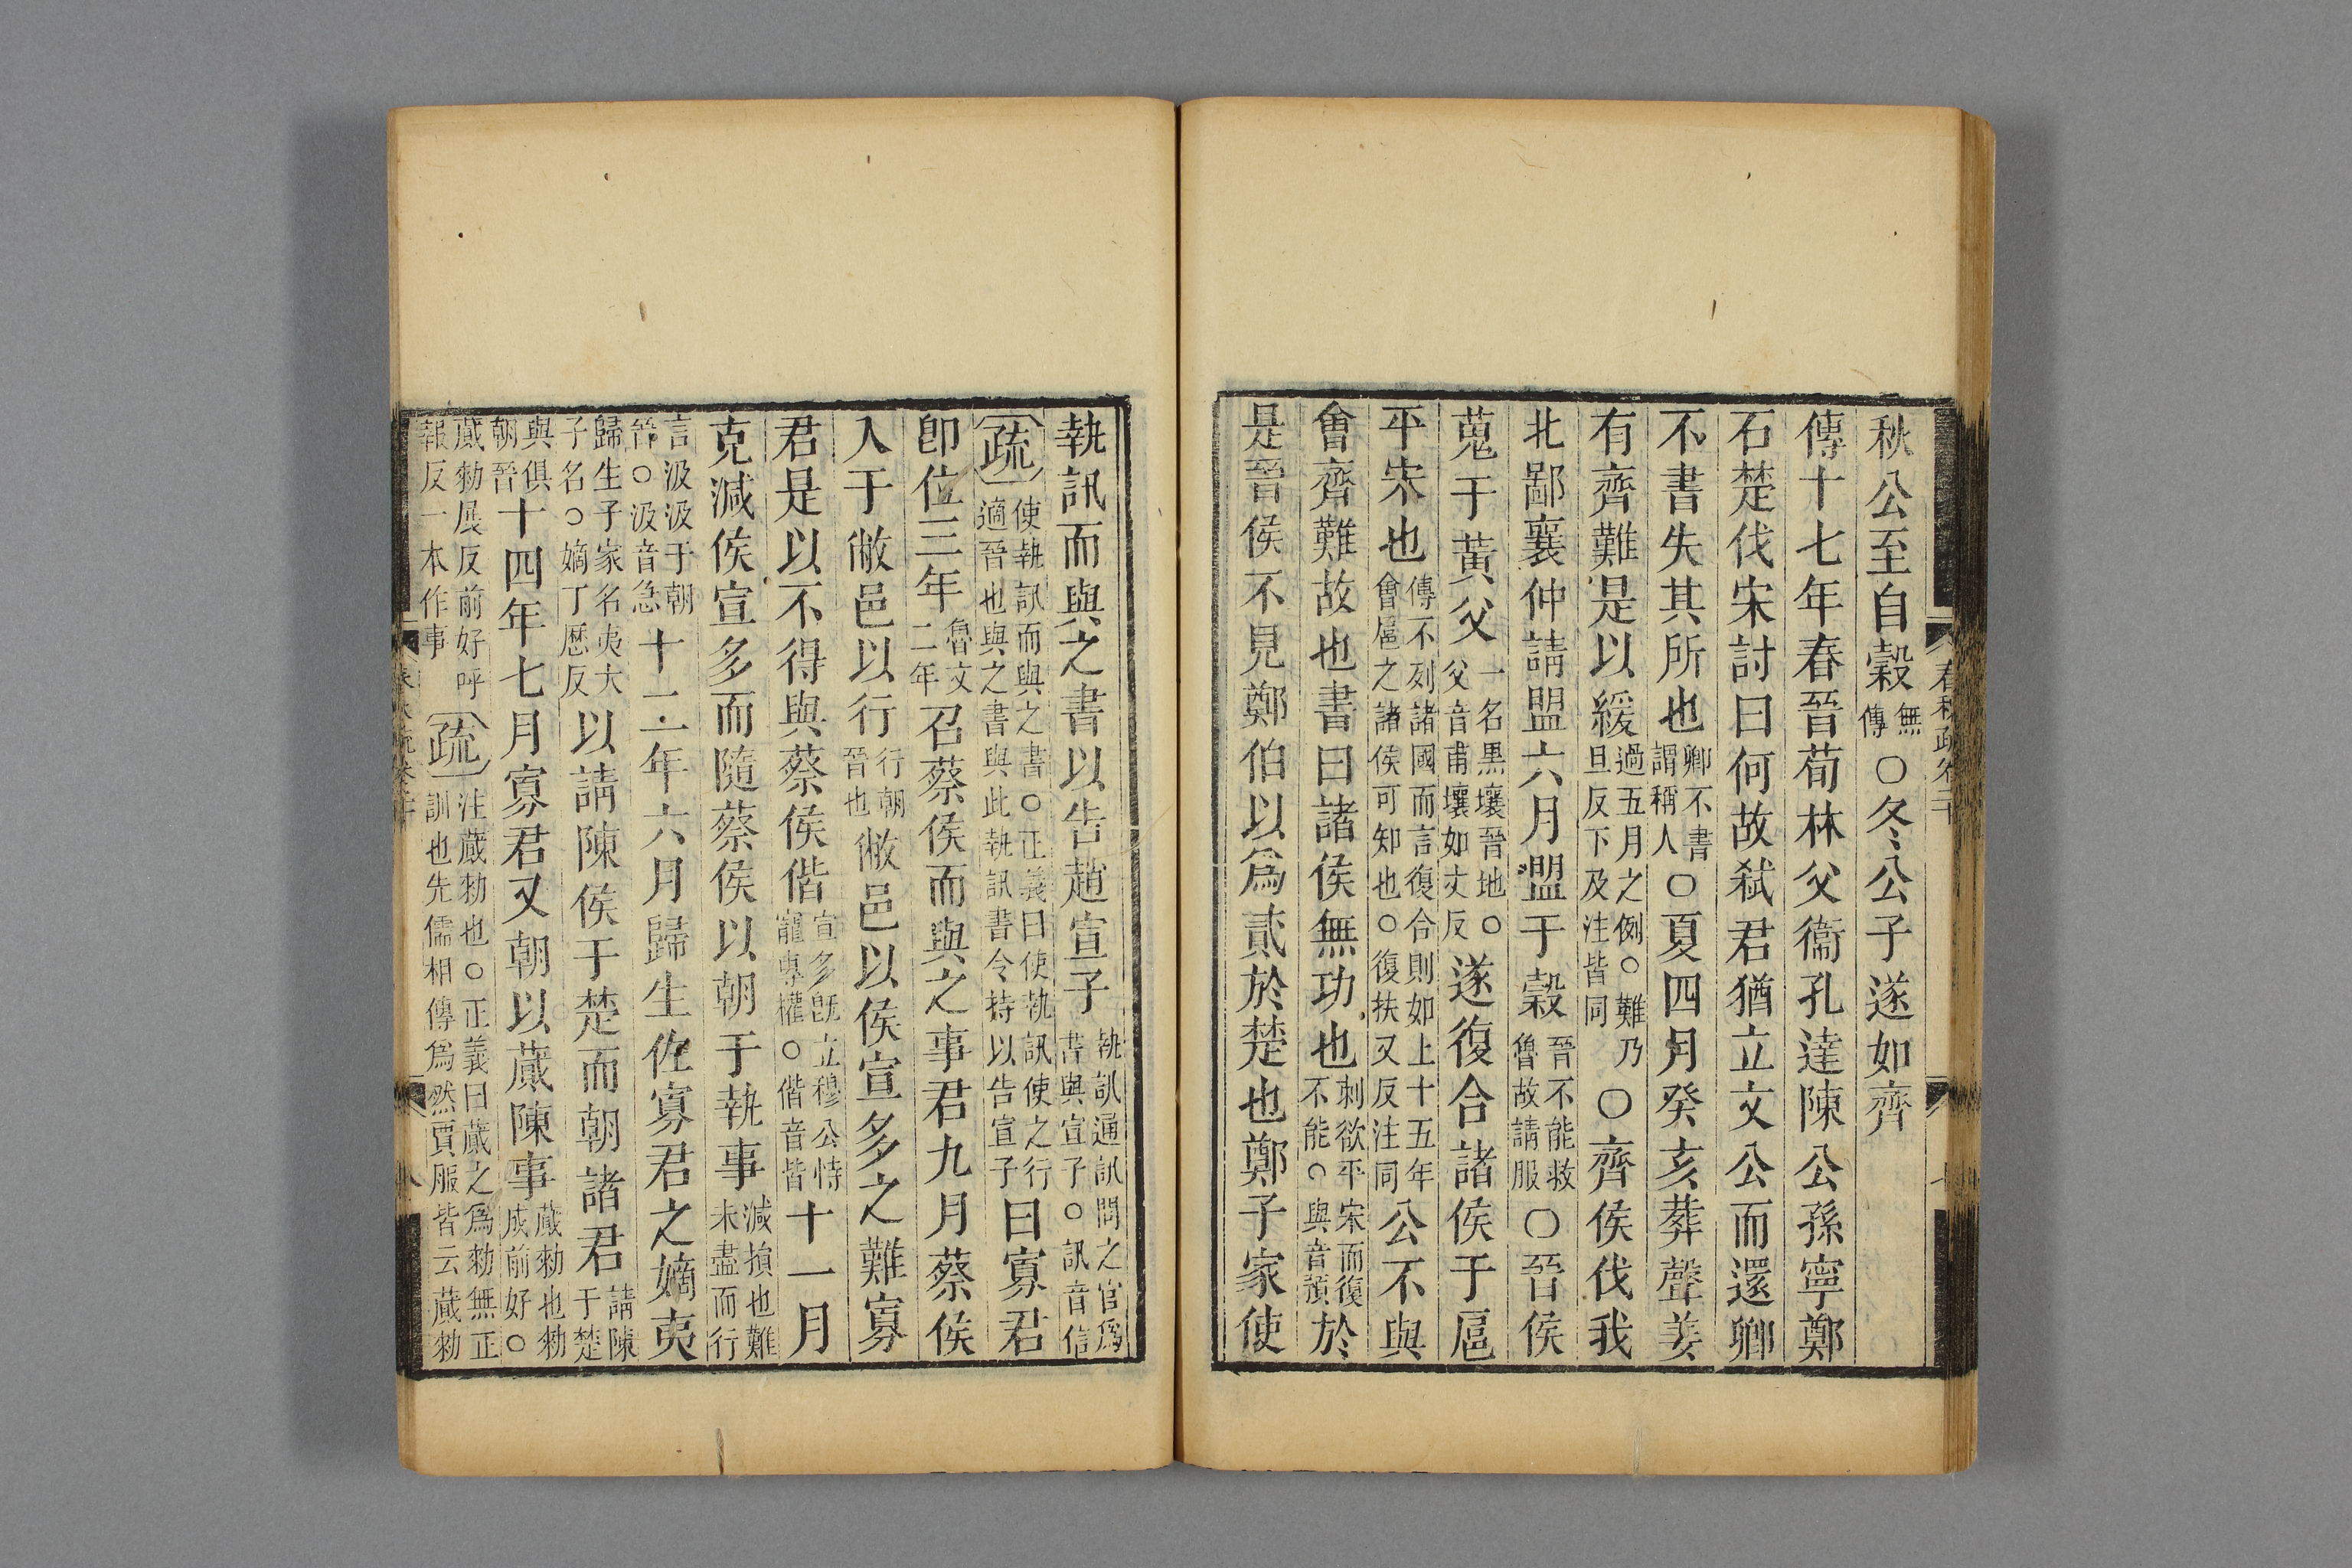 秋公至自穀無傳○冬公子遂如齊
傳十七年春晉荀林父衞孔達陳公孫寧鄭
石楚伐宋討曰何故弑君猶立文公而還卿
不書失其所也卿不書謂稱人○夏四月癸亥葬聲姜
有齊難是以緩過五月之例○難乃旦反下及注皆同○齊侯伐我
北鄙襄仲請盟六月盟于穀晉不能救魯故請服○晉侯
蒐于黃父一名黑壤晉地○父音甫壤如丈反遂復合諸侯于扈
平宋也傳不列諸國而言復合則如上十五年會扈之諸侯可知也○復扶又反注同公不與
會齊難故也書曰諸侯無功也刺欲平宋而復不能○與音預於
是晉侯不見鄭伯以爲貳於楚也鄭子家使
執訊而與之書以告趙宣子執訊通訊問之官爲書與宣子○訊音信
疏使執訊而與之書○正義曰使執訊使之行適晉也與之書與此執訊書令持以告宣子曰寡君
卽位三年魯文二年召蔡侯而與之事君九月蔡侯
入于敝邑以行行朝晉也敝邑以侯宣多之難寡
君是以不得與蔡侯偕宣多旣立穆公恃寵專權○偕音皆十一月
克減侯宣多而隨蔡侯以朝于執事減損也難未盡而行
言汲汲于朝晉○汲音急十二年六月歸生佐寡君之嫡夷
歸生子家名夷大子名○嫡丁歷反以請陳侯于楚而朝諸君請陳于楚
與俱朝晉十四年七月寡君又朝以蕆陳事蕆勑也勑成前好○
蕆勑展反前好呼報反一本作事疏注蕆勑也○正義曰蕆之爲勑無正訓也先儒相傳爲然賈服皆云蕆勑